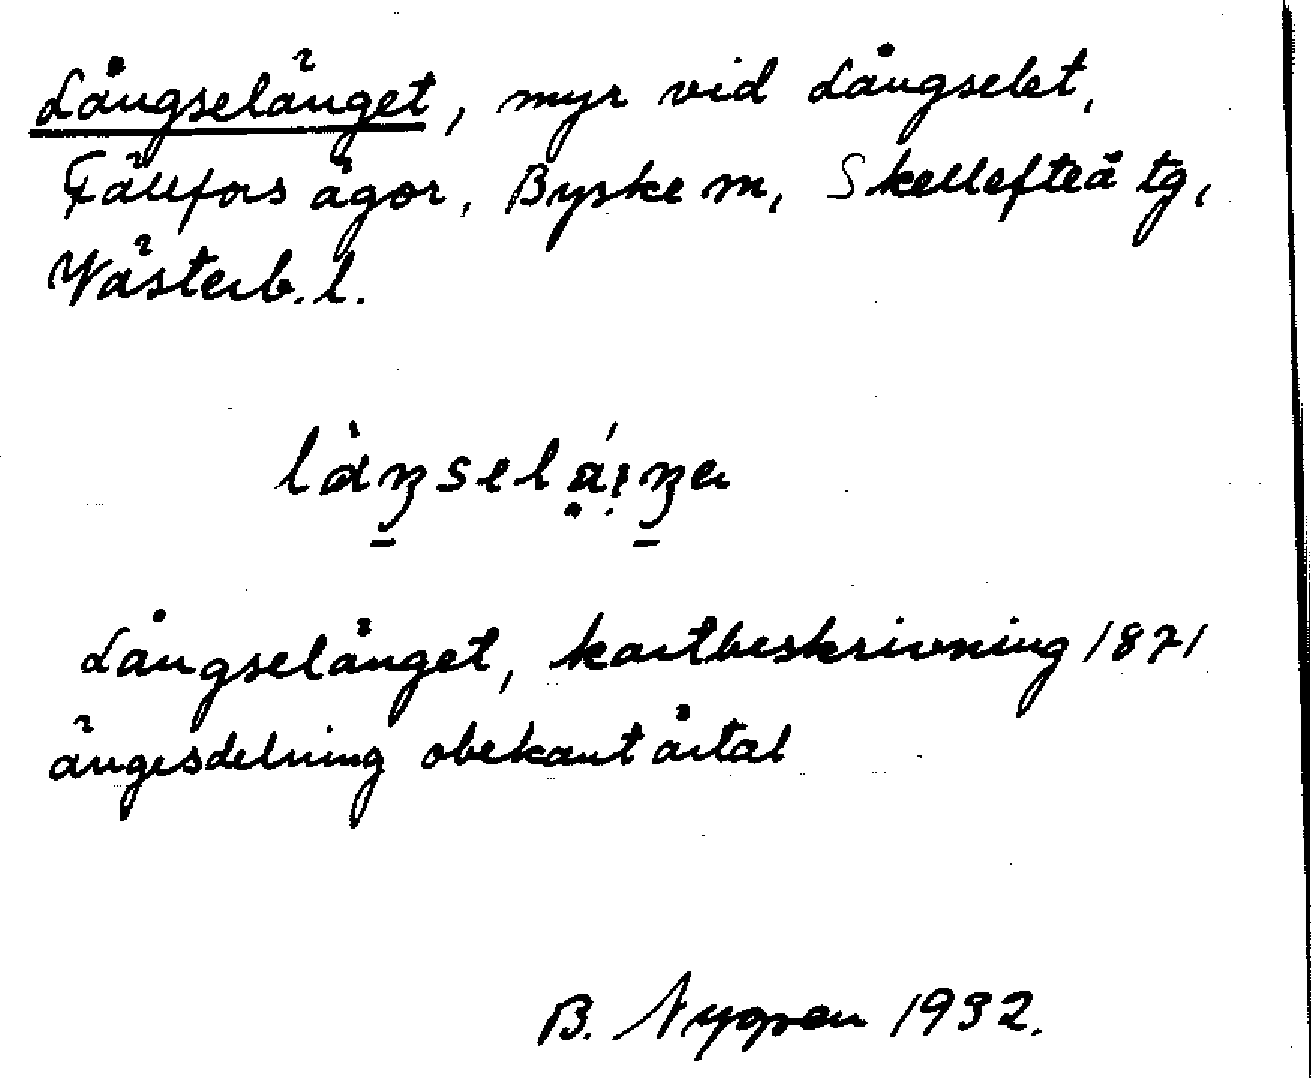 Långselänget, myr vid Långselet,
Fällfors ägor, Byske sn, Skellefteå tg,
Västerb. l.
Långselänget, kartbeskrivning 1871
ängesdelning obekant årtal
B. Nygren 1932.